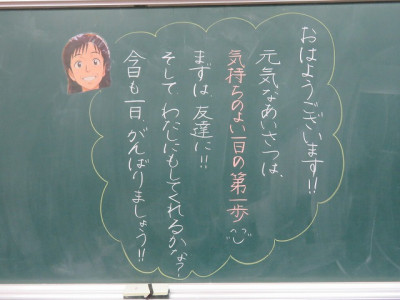 おはようございます!!
元気なあいさつは、
気持ちのよい一日の第一歩
まずは、友達に!!
そして、わたしにもしてくれるかな?
今日も一日、がんばりましょう!!